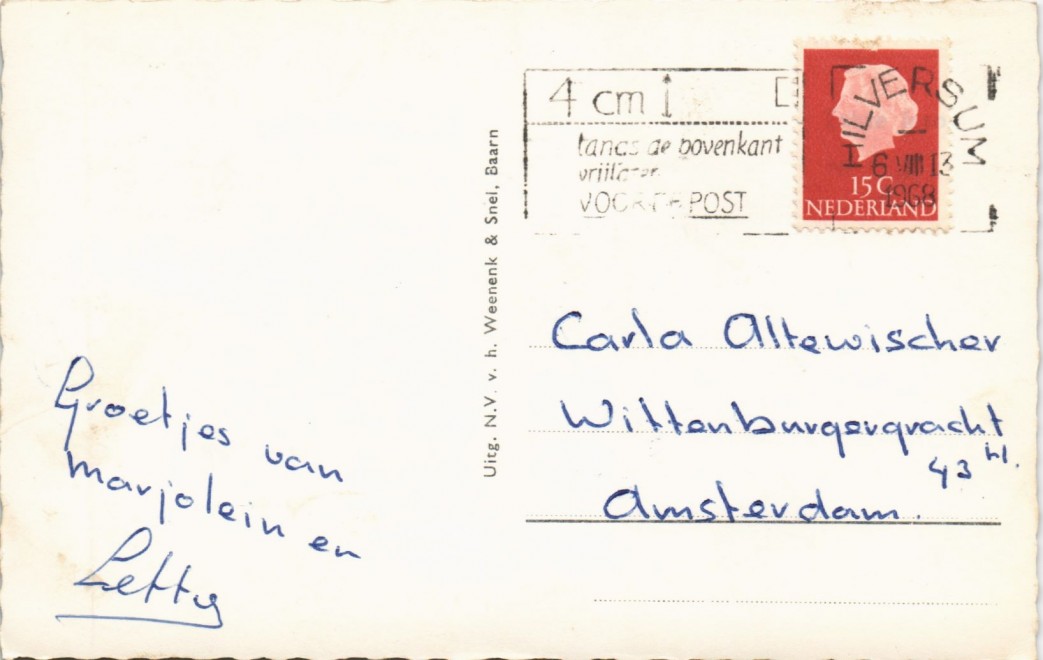 4 cm
langs de bovenkant
vrijlaten
VOOR DE POST
HILVERSUM
6 VIII 13
1968
15C
NEDERLAND
Uitg. N.V. v. h. Weenenk & Snel, Baarn
Carla Altewischer
Wittenburgergracht
43 hs.
Amsterdam.
Groetjes van
Marjolein en
Letty